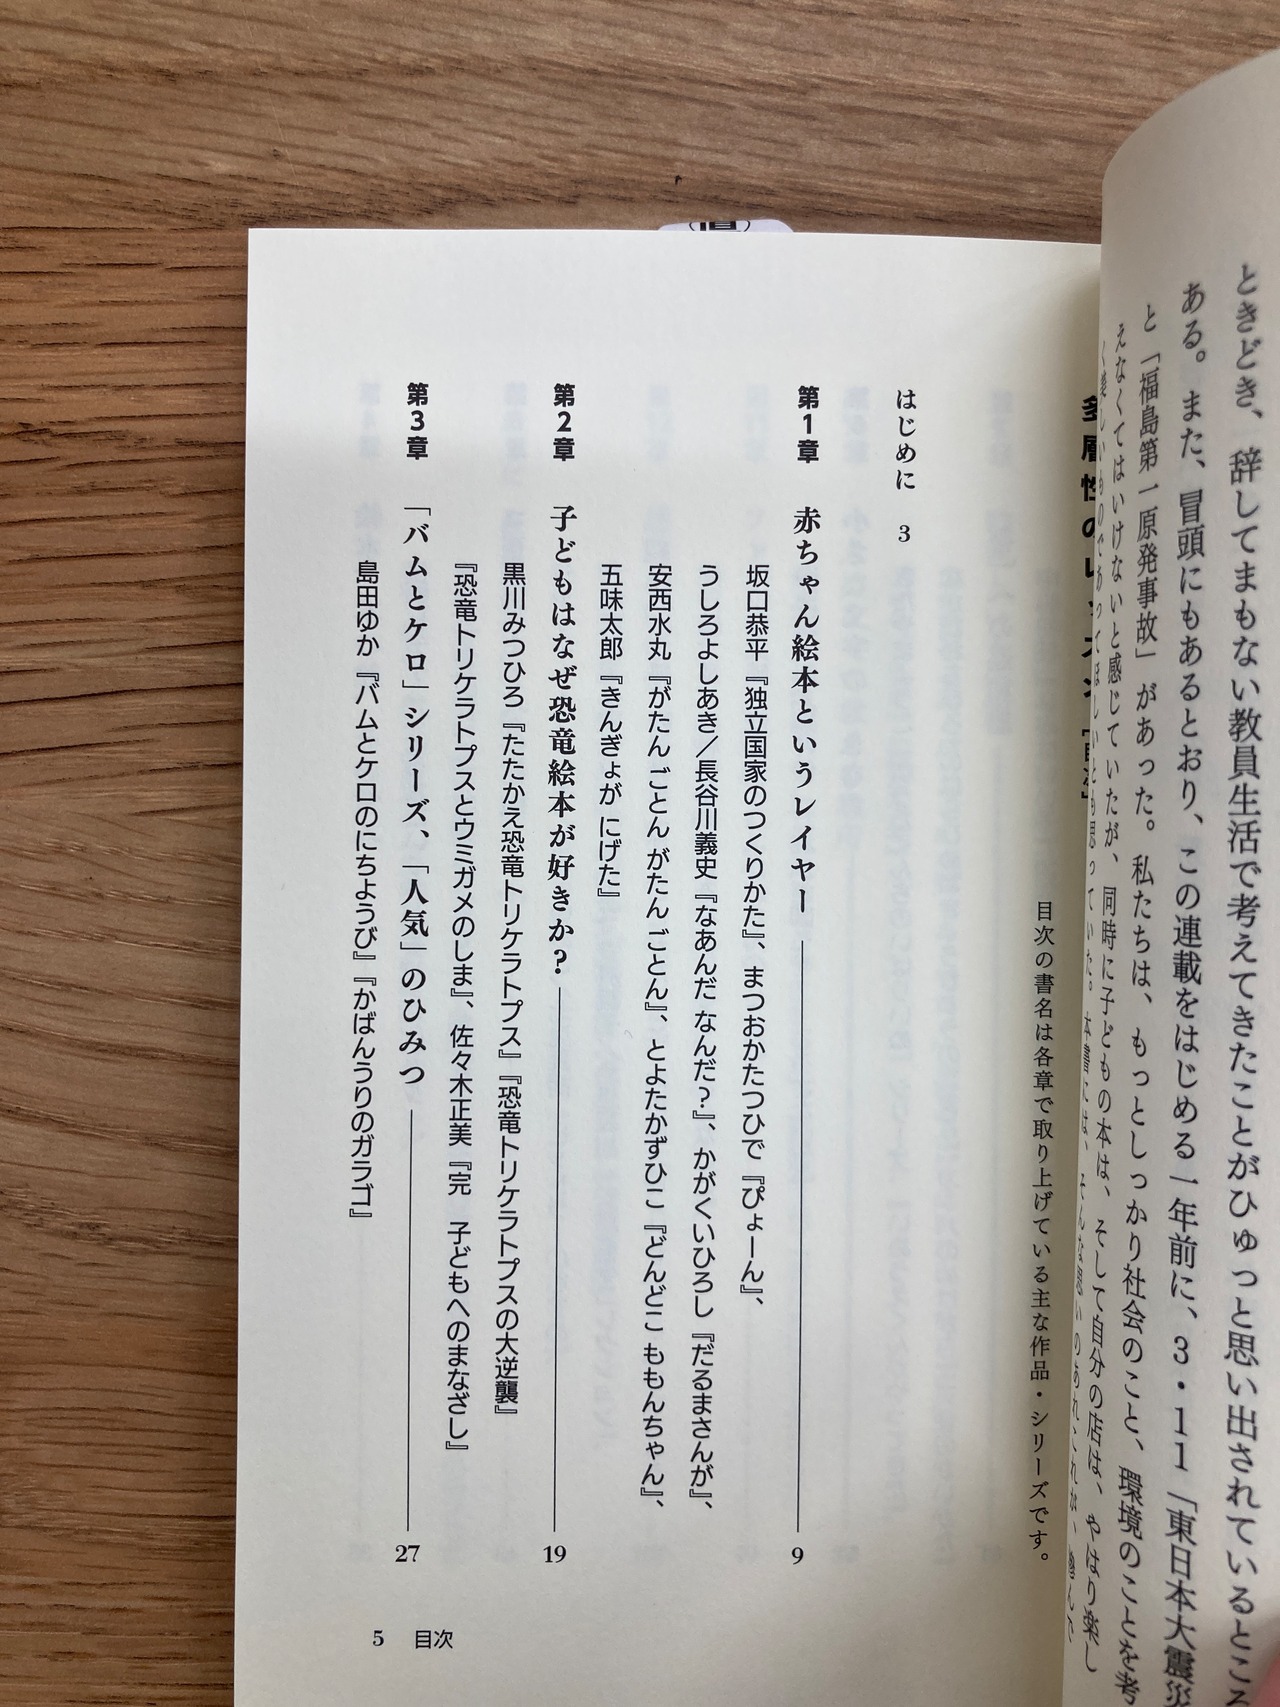 ときどき、辞してまもない教員生活で考えてきたことがひゅっと思い出されているところ
ある。また、冒頭にもあるとおり、この連載をはじめる一年前に、3・11「東日本大震災
と「福島第一原発事故」があった。私たちは、もっとしっかり社会のこと、環境のことを考
えなくてはいけないと感じていたが、同時に子どもの本は、そして自分の店は、やはり楽し
く美しいものであってほしいとも思っていた。本書には、そんな思いのあれこれが、
多層性のレ
目次の書名は各章で取り上げている主な作品・シリーズです。
はじめに 3
第1章 赤ちゃん絵本というレイヤー 9
坂口恭平『独立国家のつくりかた』、まつおかたつひで『ぴょーん』、
うしろよしあき／長谷川義史『なあんだ なんだ?』、かがくいひろし『だるまさんが』、
安西水丸『がたん ごとん がたん ごとん』、とよたかずひこ『どんどこ ももんちゃん』、
五味太郎『きんぎょが にげた』
第2章 子どもはなぜ恐竜絵本が好きか? 19
黒川みつひろ『たたかえ恐竜トリケラトプス』『恐竜トリケラトプスの大逆襲』
『恐竜トリケラトプスとウミガメのしま』、佐々木正美『完 子どもへのまなざし』
第3章 「バムとケロ」シリーズ、「人気」のひみつ 27
島田ゆか『バムとケロのにちようび』『かばんうりのガラゴ』
5 目次